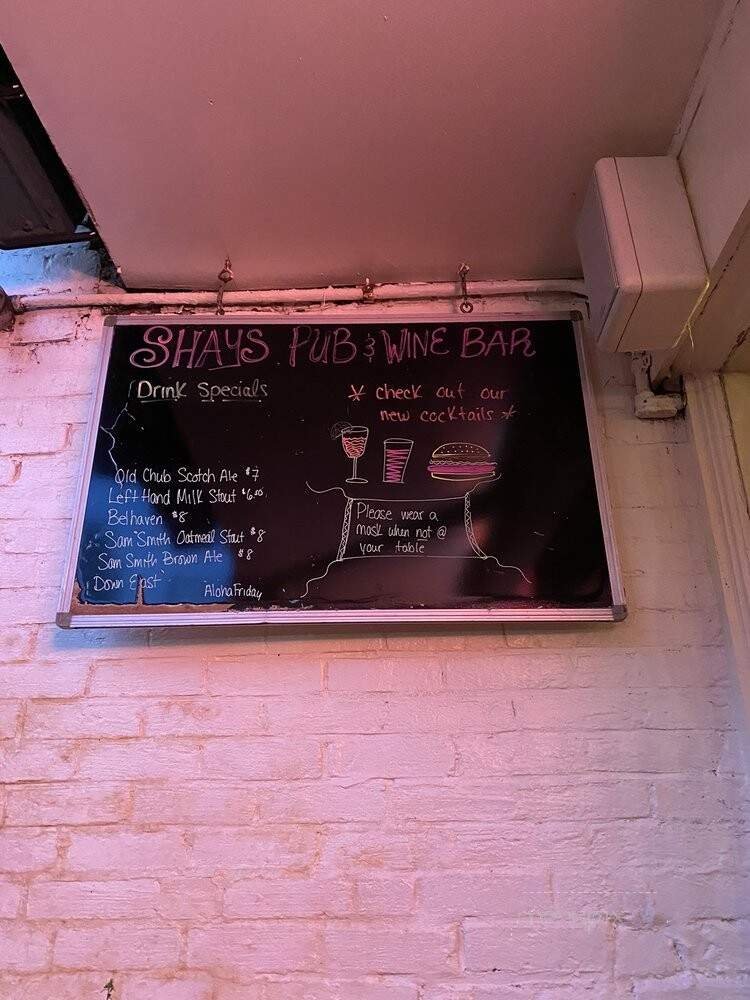 SHAYS PUB & WINE BAR
Drink Specials
* check out our
new cocktails *
Old Chub Scotch Ale $7
Left Hand Milk Stout $6.00
Belhaven $8
Sam Smith Oatmeal Stout $8
Sam Smith Brown Ale $8
Down East
Aloha Friday
Please wear a
mask when not @
your table